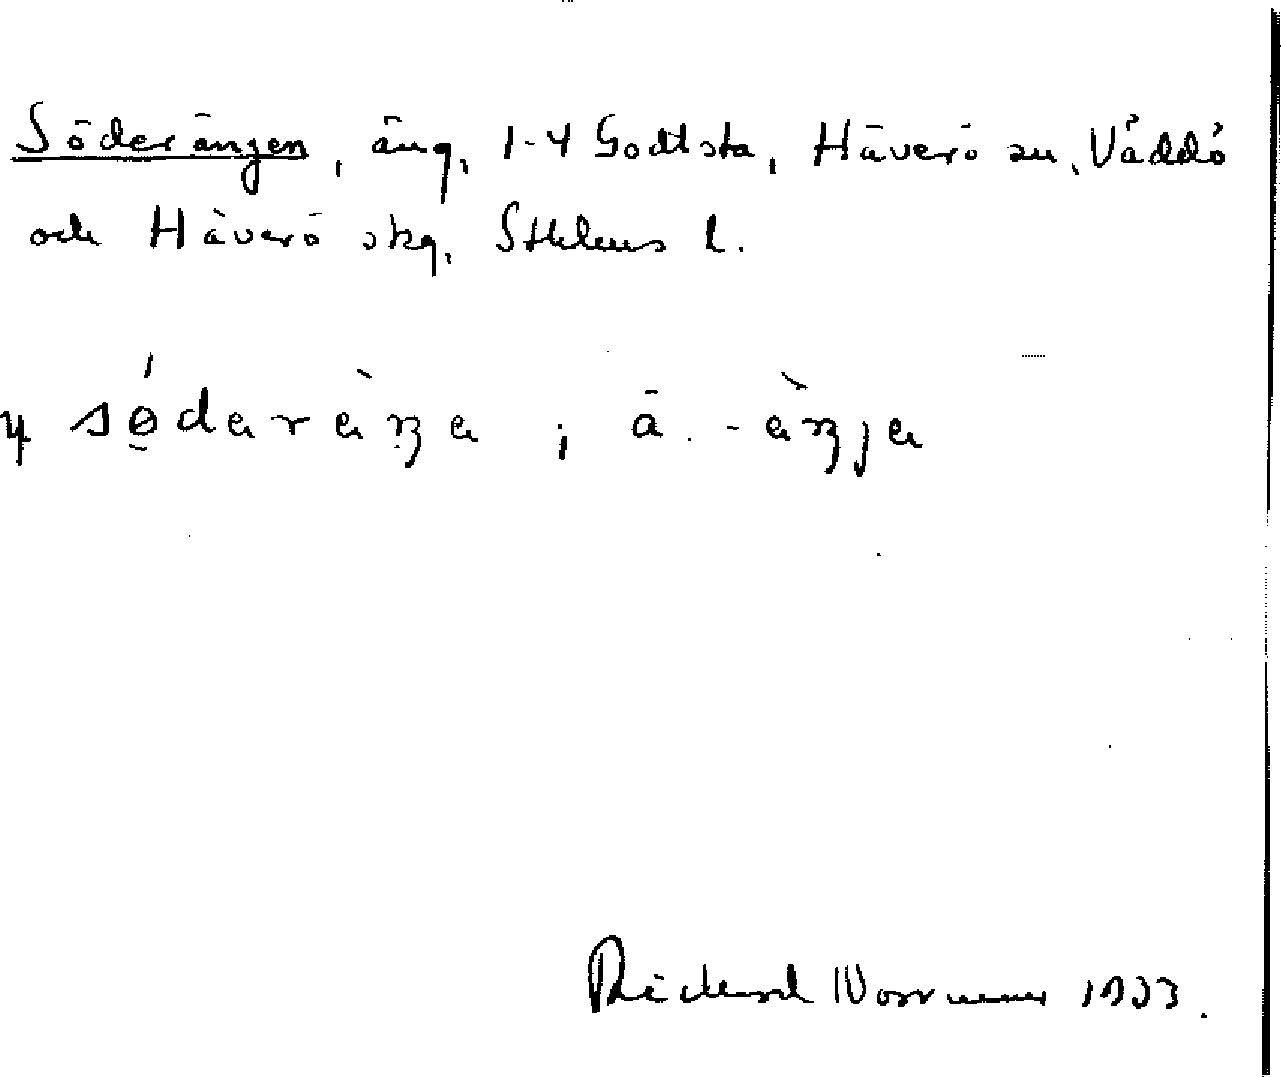 Söderängen, äng, 1-4 Godtsta, Häverö sn, Väddö
och Häverö skg, Sthlms l.
södaräŋa ; ä. -äŋja
Rickard Norrman 1933.